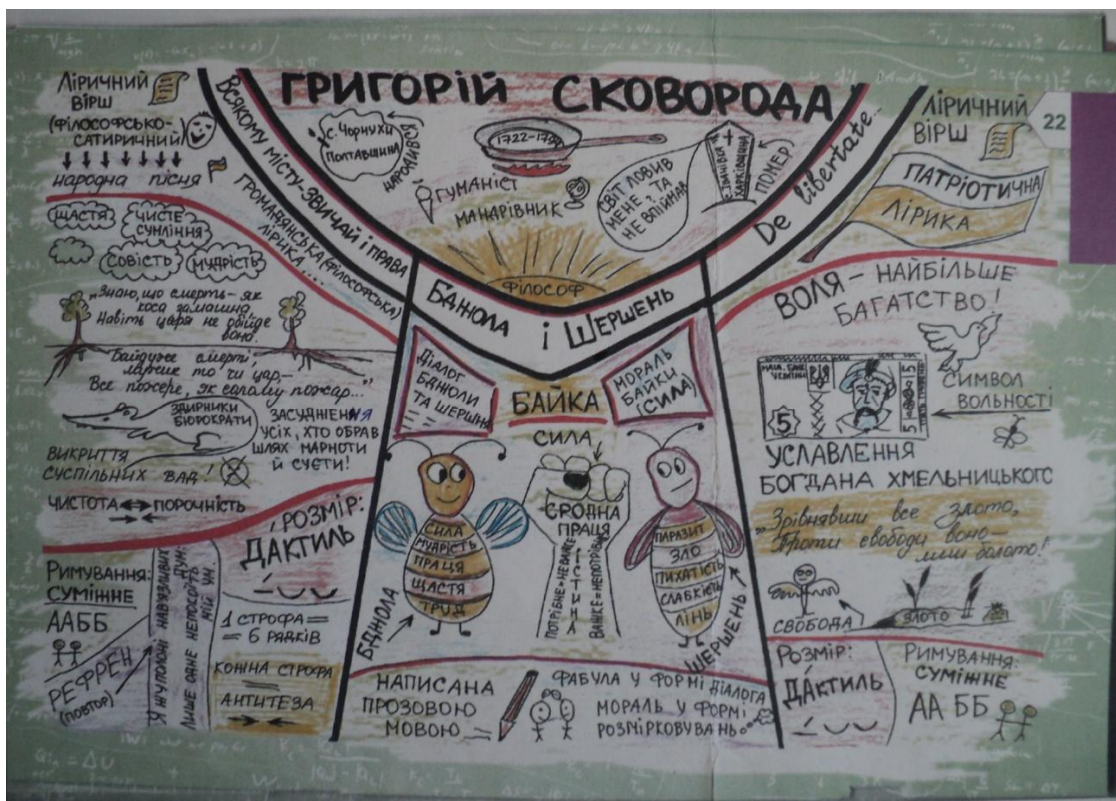 ГРИГОРІЙ СКОВОРОДА
22
с. Чорнухи
Полтавщина
народився
1722-1794
помер
Харківщина
гуманіст
мандрівник
Світ ловив
мене, та
не впіймав
філософ
Ліричний
вірш
(філософсько-
сатиричний)
народна пісня
Всякому місту-звичай і права
Громадянська (філософська)
лірика...
щастя
чисте
сумління
совість
мудрість
„Знаю, що смерть – як
коса замашна,
Навіть царя не обійде
вона.
Байдуже смерті,
мужик то чи цар, –
Все пожере, як солому пожар..."
здирники
бюрократи
засудження
усіх, хто обрав
шлях марноти
й суєти!
викриття
суспільних вад!
чистота ↔ порочність
Римування:
суміжне
ААББ
Рефрен
(повтор)
Я ж у полоні навязливих дум:
Лише одне непокоїть мій ум.
Розмір:
Дактиль
1 строфа =
= 6 рядків
кожна строфа
=
антитеза
Бджола і Шершень
Діалог
бджоли
та шершня
Байка
Мораль
байки
(сила)
сила
сродна
праця
істина
потрібне=неважке
важке=непотрібне
сила
мудрість
праця
щастя
труд
Бджола
паразит
зло
пихатість
слабкість
лінь
Шершень
написана
прозовою
мовою
фабула у формі діалога
мораль у формі
розмірковувань
De libertate
Ліричний
вірш
патріотична
лірика
Воля – найбільше
багатство!
5
символ
вольності
уславлення
Богдана Хмельницького
„Зрівнявши все злото,
Проти свободи воно –
лиш болото!
свобода
злото
Розмір:
Дактиль
Римування:
суміжне
АА ББ